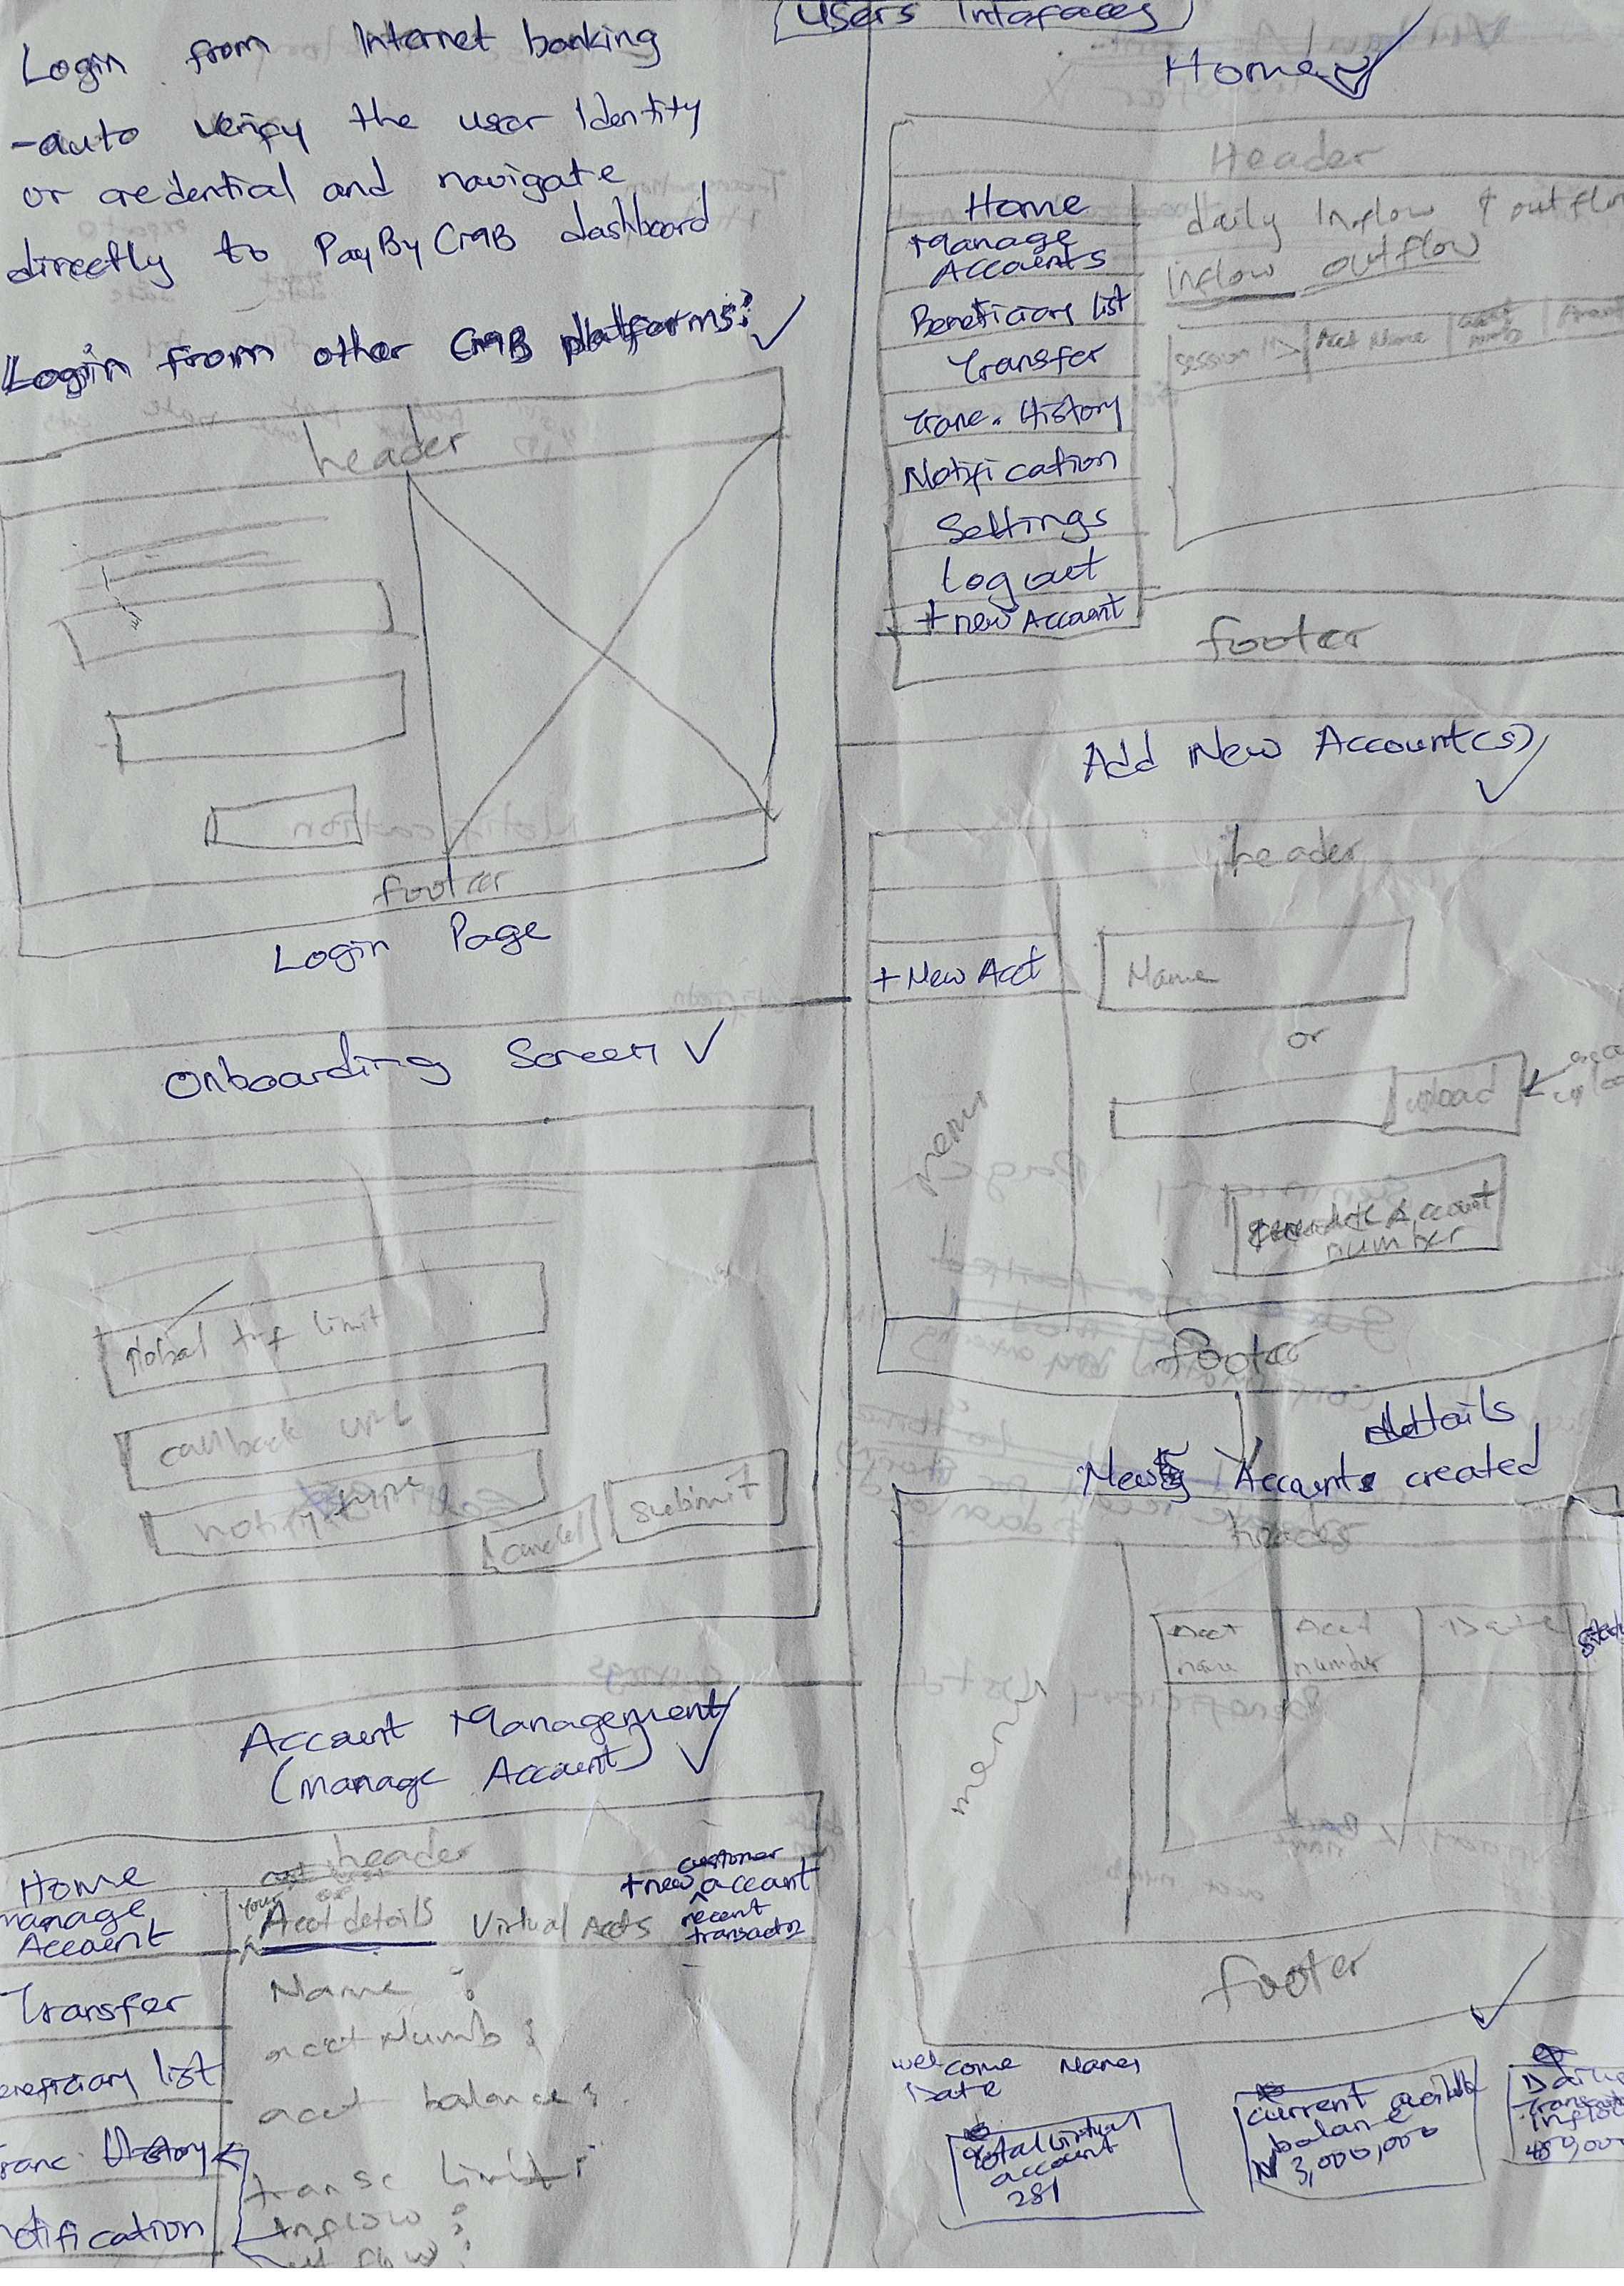 Users Intefaces
Login from Internet banking
-auto verify the user Identity
or credential and navigate
directly to PayByCMB dashboard
Login from other CMB platforms:
header
footer
Login Page
Onboarding Screen
global trf limit
callback url
notify type
cancel
submit
Account Management
(manage Account)
header
Home
manage
Account
Transfer
eneficiary list
ranc. History
otification
your
Acct details
Virtual Accts
+new customer account
recent
transact
Name :
acct Numb :
acct balance :
transc limit :
Inflow :
out flow :
Home
Header
Home
Manage
Accounts
Beneficiary list
Transfer
Tranc. History
Notification
Settings
Log out
+ new Account
daily Inflow & outflow
inflow outflow
session ID
Acct Name
footer
Add New Account(s)
header
+ New Acct
menu
Name
or
upload
Generate Account
number
footer
details
New Accounts created
header
menu
Acct
name
Acct
number
Date
footer
Welcome Name,
Date
Total virtual
account
281
current availabe
balance
N 3,000,000